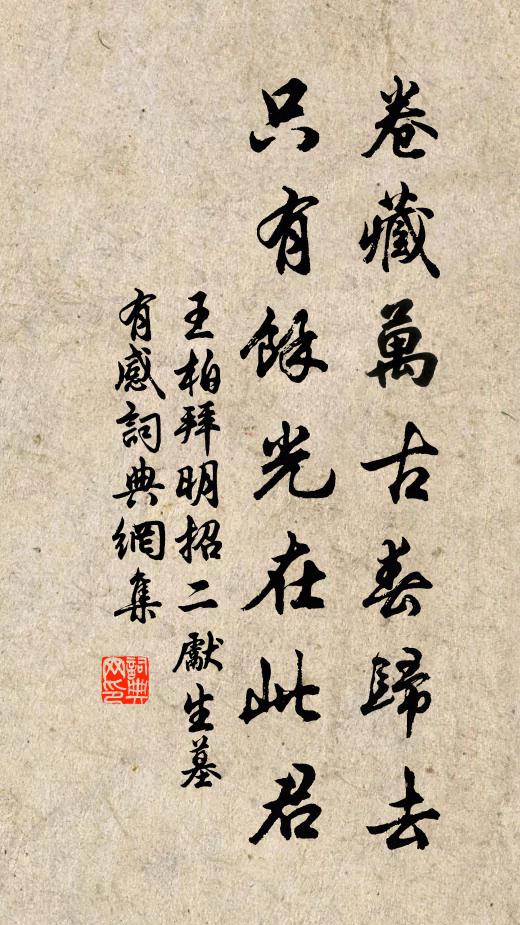 卷藏萬古春歸去
只有餘光在此君
王柏拜明招二獻生墓
有感詞典網集
詞典
网印